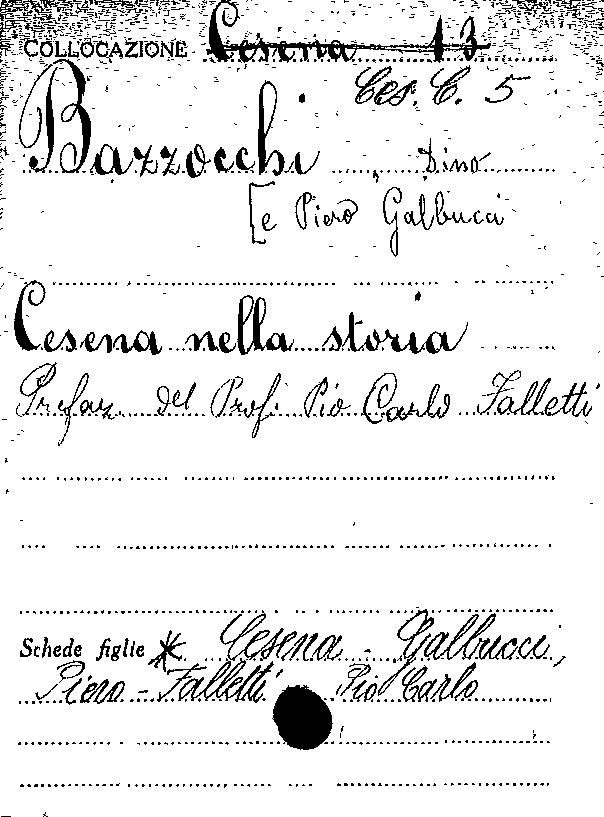 COLLOCAZIONE Cesena 13
Ces. C. 5
Bazzocchi, Dino
[e Piero Galbucci
Cesena nella storia
Prefaz. del Prof. Pio Carlo Falletti
Schede figlie * Cesena - Galbucci,
Piero - Falletti Pio Carlo